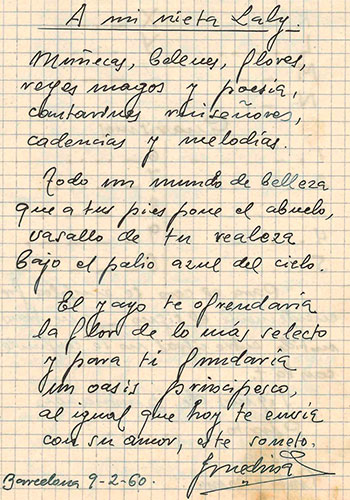 A mi nieta Laly.
Muñecas, belenes, flores,
reyes magos y poesía,
cantarines ruiseñores,
cadencias y melodías.
Todo un mundo de belleza
que a tus pies pone el abuelo,
vasallo de tu realeza
bajo el palio azul del cielo.
El yayo te ofrendaría
la flor de lo más selecto
y para ti fundaría
un oasis principesco,
al igual que hoy te envía
con su amor, este soneto.
Barcelona 9-2-60.